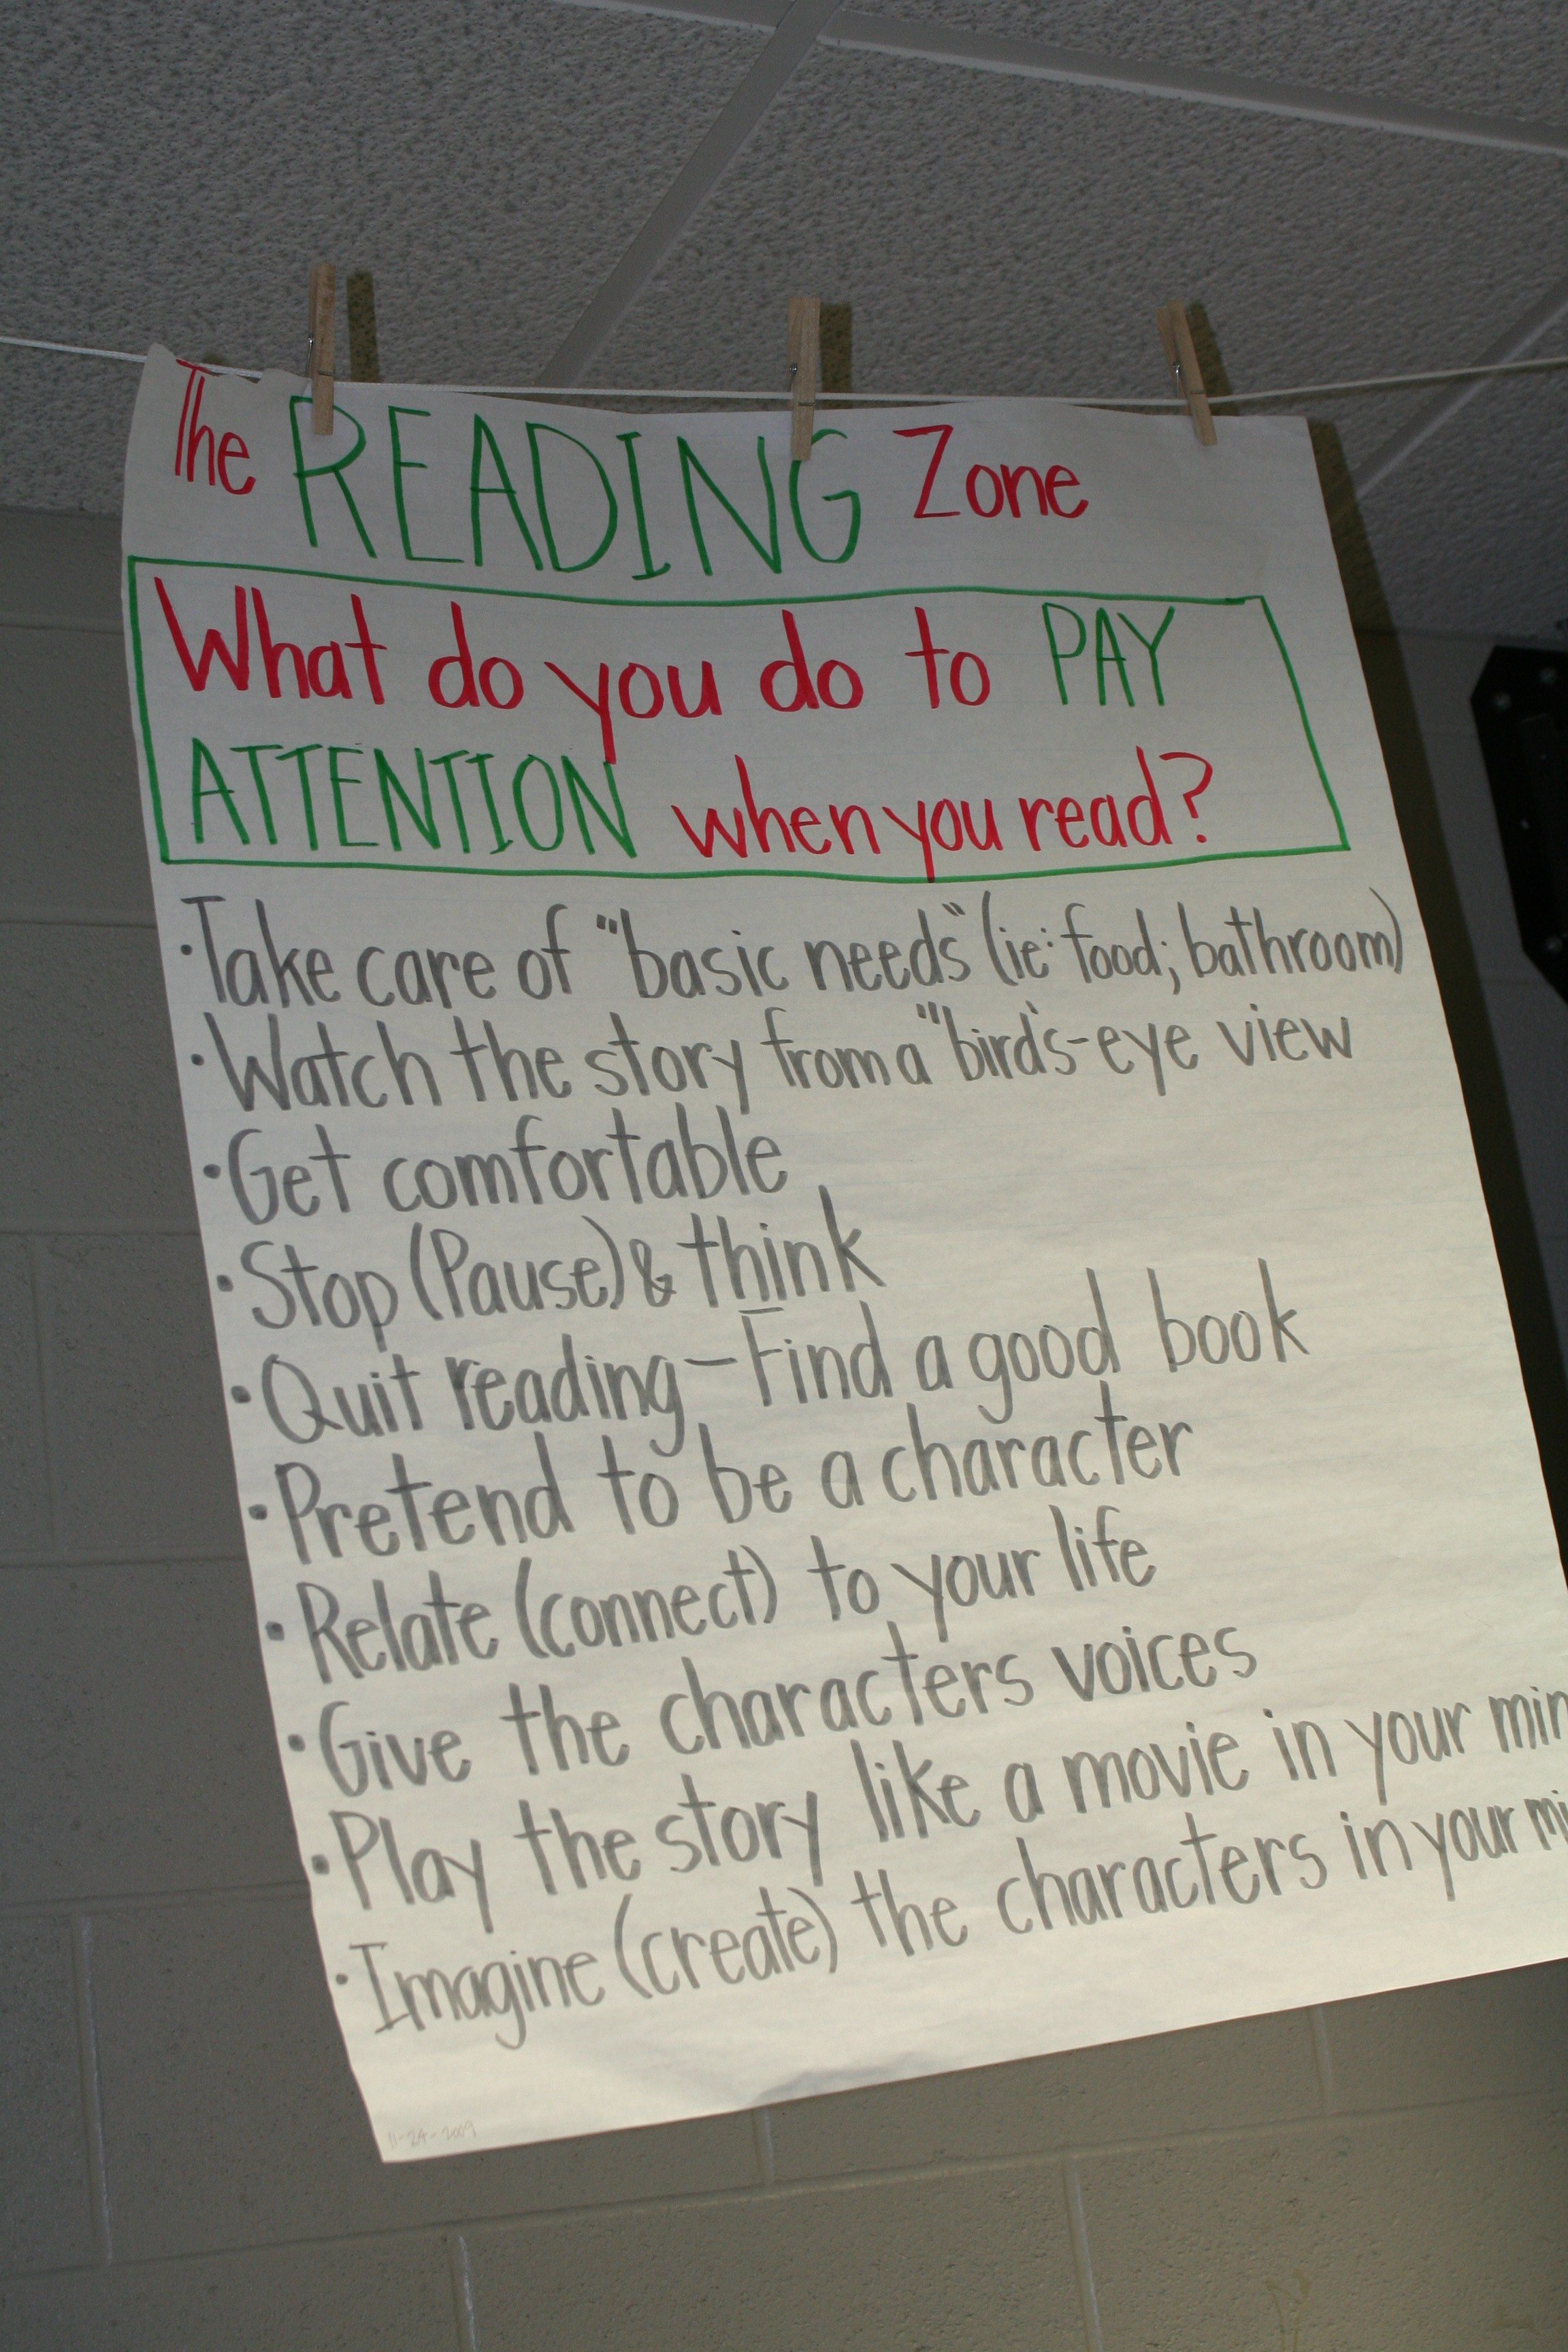 The READING Zone
What do you do to PAY
ATTENTION when you read?
·Take care of "basic needs" (ie: food; bathroom)
·Watch the story from a "bird's-eye view
·Get comfortable
·Stop (Pause) & think
·Quit reading - Find a good book
·Pretend to be a character
·Relate (connect) to your life
·Give the characters voices
·Play the story like a movie in your min
·Imagine (create) the characters in your mi
11-24-2009